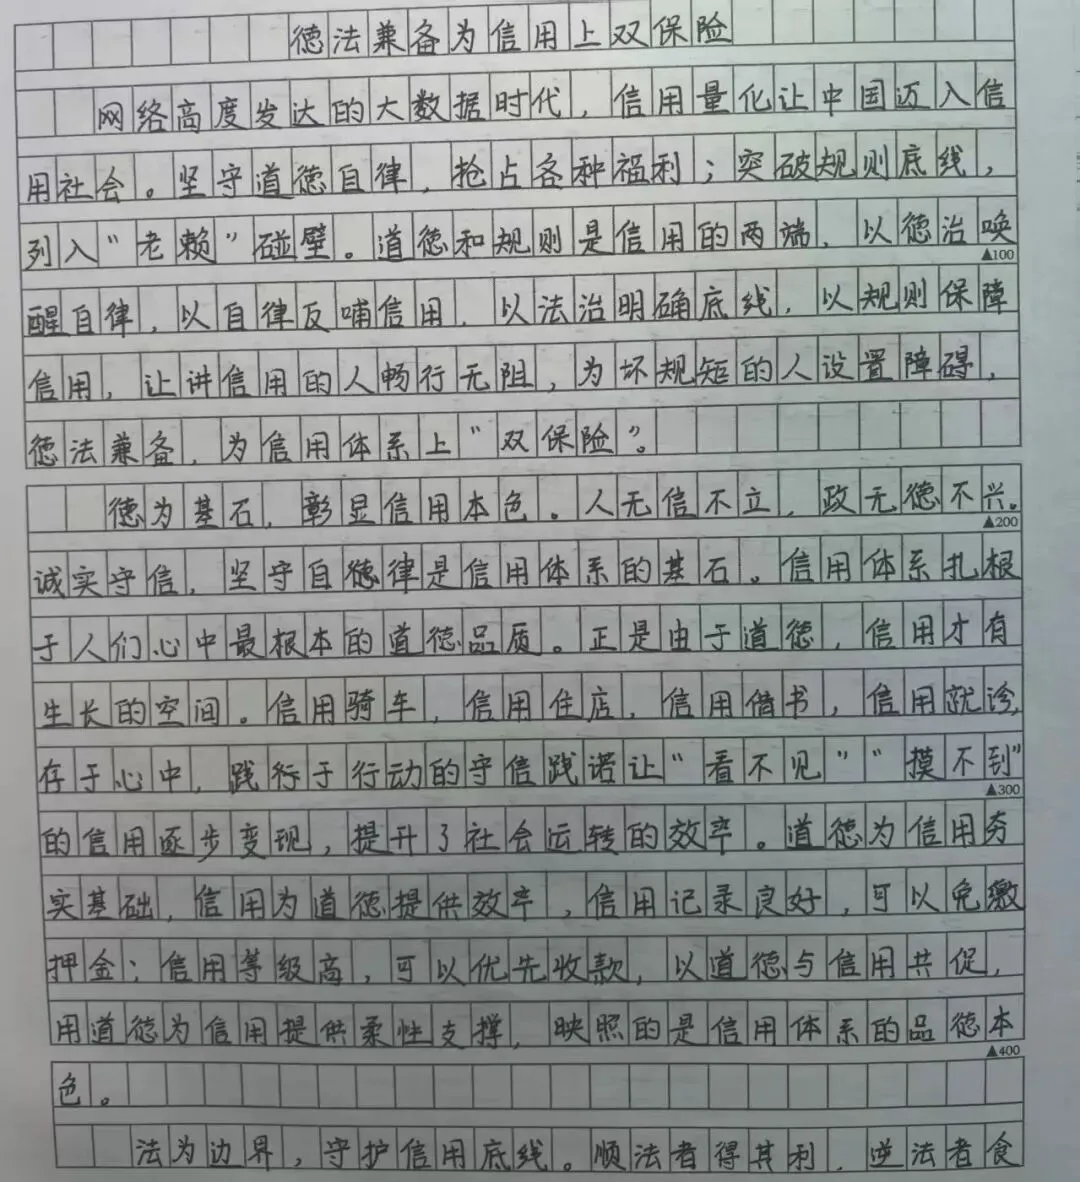 德法兼备为信用上双保险
网络高度发达的大数据时代，信用量化让中国迈入信
用社会。坚守道德自律，抢占各种福利；突破规则底线，
列入“老赖”碰壁。道德和规则是信用的两端，以德治唤
▲100
醒自律，以自律反哺信用，以法治明确底线，以规则保障
信用，让讲信用的人畅行无阻，为坏规矩的人设置障碍，
德法兼备，为信用体系上“双保险”。
德为基石，彰显信用本色。人无信不立，政无德不兴。
▲200
诚实守信，坚守自德律是信用体系的基石。信用体系扎根
于人们心中最根本的道德品质。正是由于道德，信用才有
生长的空间。信用骑车，信用住店，信用借书，信用就诊，
存于心中，践行于行动的守信践诺让“看不见”“摸不到”
▲300
的信用逐步变现，提升了社会运转的效率。道德为信用夯
实基础，信用为道德提供效率，信用记录良好，可以免缴
押金；信用等级高，可以优先收款，以道德与信用共促，
用道德为信用提供柔性支撑，映照的是信用体系的品德本
▲400
色。
法为边界，守护信用底线。顺法者得其利，逆法者食